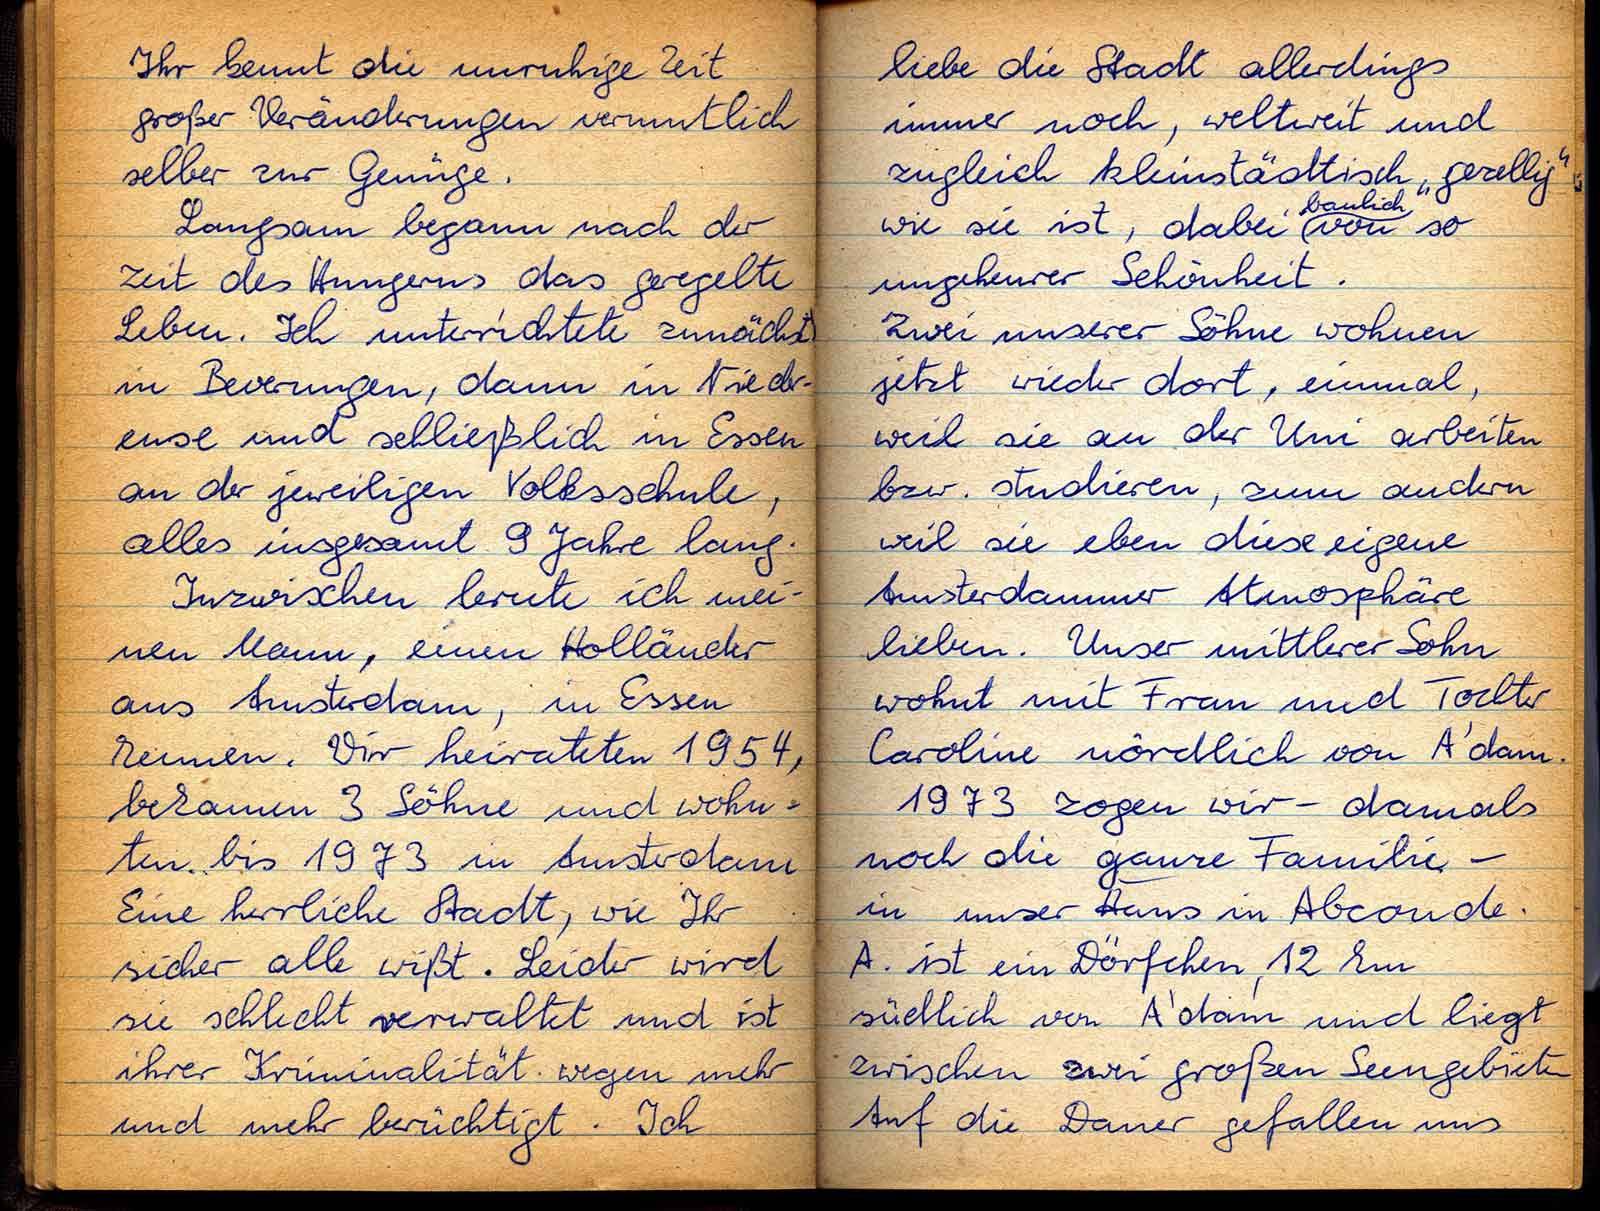 Ihr kennt die unruhige Zeit
großer Veränderungen vermutlich
selber zur Genüge.
Langsam begann nach der
Zeit des Hungerns das geregelte
Leben. Ich unterrichtete zunächst
in Beverungen, dann in Nieder-
ense und schließlich in Essen
an der jeweiligen Volksschule,
alles insgesamt 9 Jahre lang.
Inzwischen lernte ich mei-
nen Mann, einen Holländer
aus Amsterdam, in Essen
kennen. Wir heirateten 1954,
bekamen 3 Söhne und wohn-
ten bis 1973 in Amsterdam
Eine herrliche Stadt, wie Ihr
sicher alle wißt. Leider wird
sie schlecht verwaltet und ist
ihrer Kriminalität wegen mehr
und mehr berüchtigt. Ich
liebe die Stadt allerdings
immer noch, weltweit und
zugleich kleinstädtisch „gezellig“
wie sie ist, dabei baulich (von so
ungeheurer Schönheit.
Zwei unserer Söhne wohnen
jetzt wieder dort, einmal,
weil sie an der Uni arbeiten
bzw. studieren, zum andern
weil sie eben diese eigene
Amsterdammer Atmosphäre
lieben. Unser mittlerer Sohn
wohnt mit Frau und Tochter
Caroline nördlich von A'dam.
1973 zogen wir – damals
noch die ganze Familie –
in unser Haus in Abcoude.
A. ist ein Dörfchen, 12 km
südlich von A'dam und liegt
zwischen zwei großen Seengebieten
Auf die Dauer gefallen uns